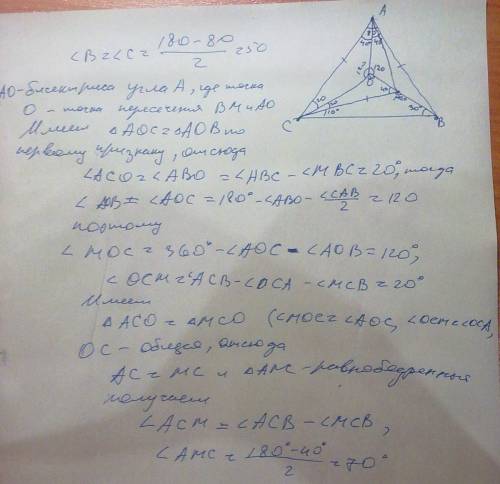 ∠B=∠C= (180-80)/2 =50
AO-биссектриса угла А, где точка
О - точка пересечения ВМ и АО
Имеем △AOC=△AOB по
первому признаку, отсюда
∠ACO=∠ABO =∠ABC-∠MBC=20°, тогда
∠AOB=∠AOC=180°-∠ABO-∠CAB/2=120
поэтому
∠MOC=360°-∠AOC-∠AOB=120°,
∠OCM=∠ACB-∠OCA-∠MCB=20°
Имеем
△ACO=△MCO (∠MOC=∠AOC, ∠OCM=∠OCA,
OC- общая, отсюда
AC=MC и △AMC-равнобедренный
получаем
∠ACM=∠ACB-∠MCB,
∠AMC= (180°-40°)/2 =70°
A
40
40
120
120
O
20
20
10°
C
B